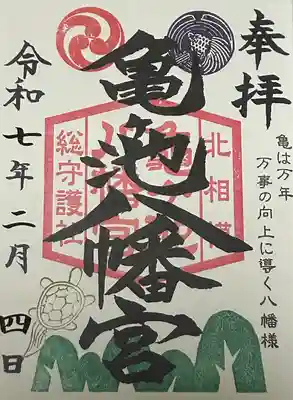 奉拝
亀は万年
万事の向上に導く八幡様
北相模
総守護社
亀ヶ池
八幡宮
亀池八幡宮
令和七年二月四日